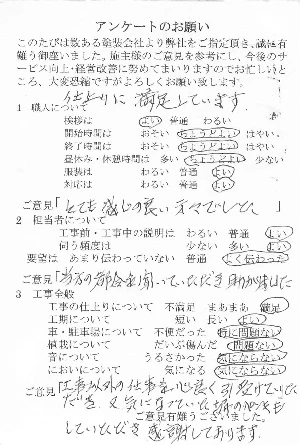 アンケートのお願い
このたびは数ある塗装会社より弊社をご指定頂き、誠に有
難う御座いました。施主様のご意見を参考にし、今後のサ
ービス向上・経営改善に努めてまいりますのでお忙しいと
ころ、大変恐縮ですがよろしくお願い致します。
仕上りに満足しています。
1 職人について
挨拶は よい 普通 わるい
開始時間は おそい ちょうどよい はやい
終了時間は おそい ちょうどよい はやい
昼休み・休憩時間は 多い ちょうどよい 少ない
服装は わるい 普通 よい
対応は わるい 普通 よい
ご意見「とても感じの良い方々でした」
2 担当者について
工事前・工事中の説明は わるい 普通 よい
伺う頻度は 少ない 多い よい
要望は あまり伝わっていない 普通 よく伝わった
ご意見「当方の都合を聞いていただき助かりました
3 工事全般
工事の仕上りについて 不満足 まあまあ 満足
工期について 短い 長い よい
車・駐車場について 不便だった 特に問題ない
植栽について だいぶ傷んだ 問題ない
音について うるさかった 気にならない
においについて 気になる 気にならない
ご意見「工事以外の仕事を心良く引受けていた
だき、又気になっていた
ご意見有難うございました。
していただき感謝しております。